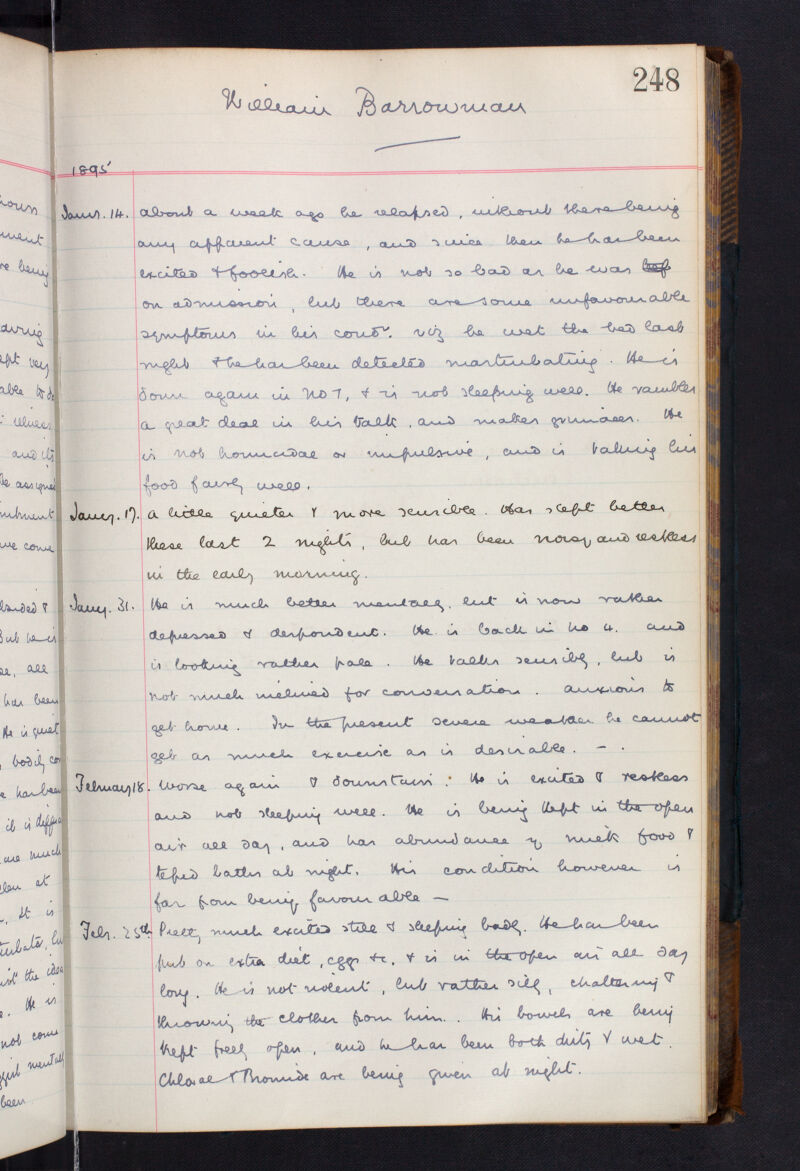 248
William Barrowman
1895
Jany. 14. about a week ago he relapsed, without there being
any apparent cause, and since then he has been
excited & foolish. He is not so bad as he was
on admission, but there are some unfavourable
symptoms in his condn. viz he wet the bed last
night & he has been detected masturbating. He is
down again in No 7, & is not sleeping well. He rambles
a great deal in his talk, and makes grimaces. He
is not homicidal or impulsive, and is taking his
food fairly well.
Jany. 17. a little quieter & more sensible. Has slept better
these last 2 nights, but has been noisy and restless
in the early morning.
Jany. 31. He is much better mentally, but is now rather
depressed & despondent. He is back in No 4. and
is looking rather pale. He talks sensibly, but is
not much inclined for conversation. anxious to
get home. In the present severe weather he cannot
get as much exercise as is desirable. – .
February 18. Worse again & downstairs. He is excited & restless
and not sleeping well. He is being kept in the open
air all day, and has abundance of milk food &
tepid baths at night. His condition however is
far from being favourable —
Feby. 25th Pretty much excited still & sleeping badly. He has been
put on extra diet, eggs &c, & is in the open air all day
long. He is not violent, but rather silly, chattering &
throwing the clothes from him. His bowels are being
kept freely open, and he has been both dirty & wet.
Chloral & Bromide are being given at night.
ment
re being
during
kept very
able to do
illness
and its
we come
But he is
all
has been
He is quiet
bodily
he has been
it is
are much
at
It is
the idea
He is
not come
been